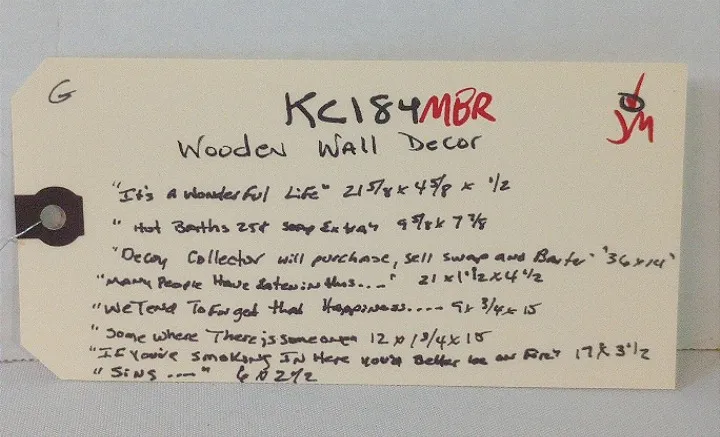 G
KC184 MBR
JM
Wooden Wall Decor
"It's a Wonderful Life" 21 5/8 x 4 5/8 x 1/2
"Hot Barths 25¢ soap Extra" 9 5/8 x 7 3/8
"Decoy Collector will purchase, sell swap and Barter" "36 x 14"
"Many People Have Eaten in this...." 21 x 1 1/2 x 4 1/2
"We Tend To Forget that Happiness.... 9 x 3/4 x 15
"Some where There is someone 12 x 1 3/4 x 15
"If You're Smoking In Here You'd Better be on Fire" 17 x 3 1/2
"Sing ...." 6 x 2 1/2